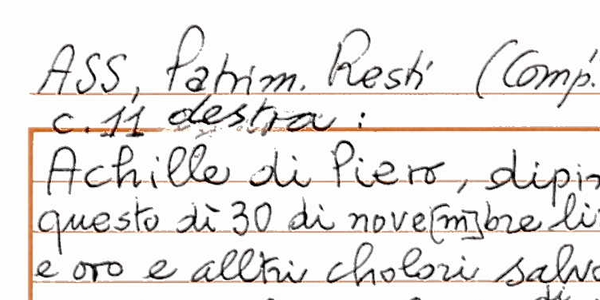 ASS, Patrim. Resti (Comp.
c. 11 destra :
Achille di Piero, dipin
questo dì 30 di nove[m]bre li
e oro e alltri cholori salvo
di